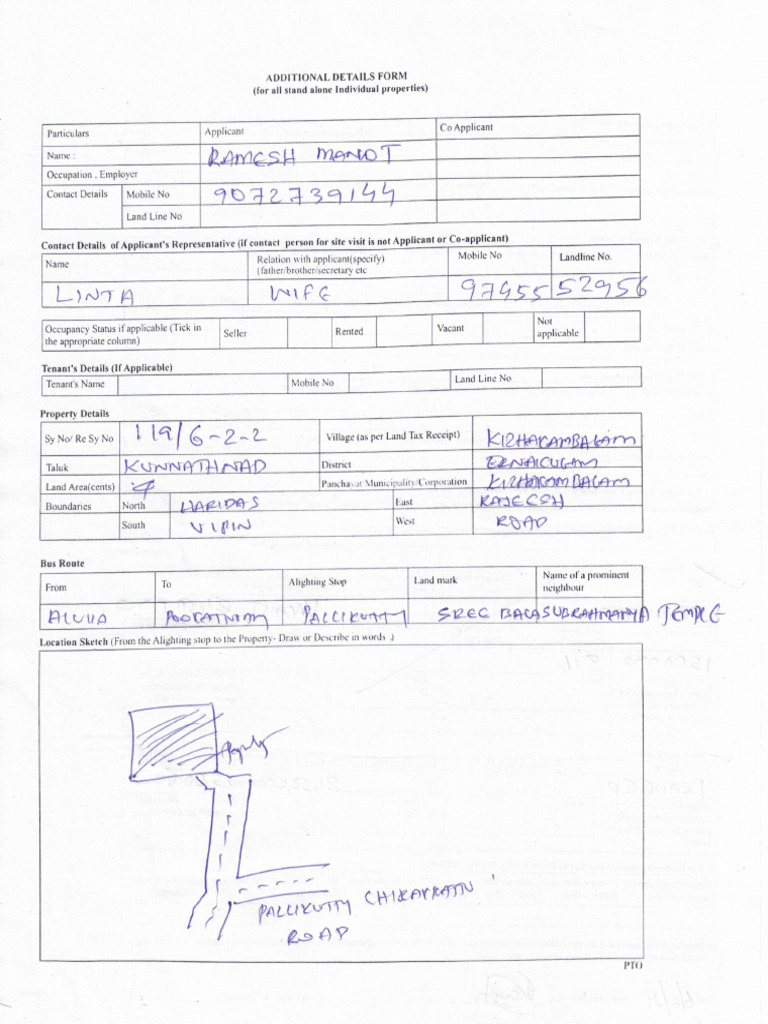 ADDITIONAL DETAILS FORM
(for all stand alone Individual properties)
Particulars Applicant Co Applicant
Name : RAMESH MANOT
Occupation , Employer
Contact Details Mobile No 9072739144
Land Line No
Contact Details of Applicant's Representative (if contact person for site visit is not Applicant or Co-applicant)
Name Relation with applicant(specify) Mobile No Landline No.
(father/brother/secretary etc
LINTA WIFE 9745552956
Occupancy Status if applicable (Tick in Seller Rented Vacant Not
the appropriate column) applicable
Tenant's Details (If Applicable)
Tenant's Name Mobile No Land Line No
Property Details
Sy No/ Re Sy No 119/6-2-2 Village (as per Land Tax Receipt) KIZHAKAMBALAM
Taluk KUNNATHNAD District ERNAKULAM
Land Area(cents) Panchayat Municipality/Corporation KIZHAKAMBALAM
Boundaries North HARIDAS East RAJEESH
South VIPIN West ROAD
Bus Route
From To Alighting Stop Land mark Name of a prominent
neighbour
ALUVA POORATNIAM PALLIKUTTY SREE BALASUBRAHMANYA TEMPLE
Location Sketch (From the Alighting stop to the Property- Draw or Describe in words .)
PALLIKUTTY
ROAD
PTO